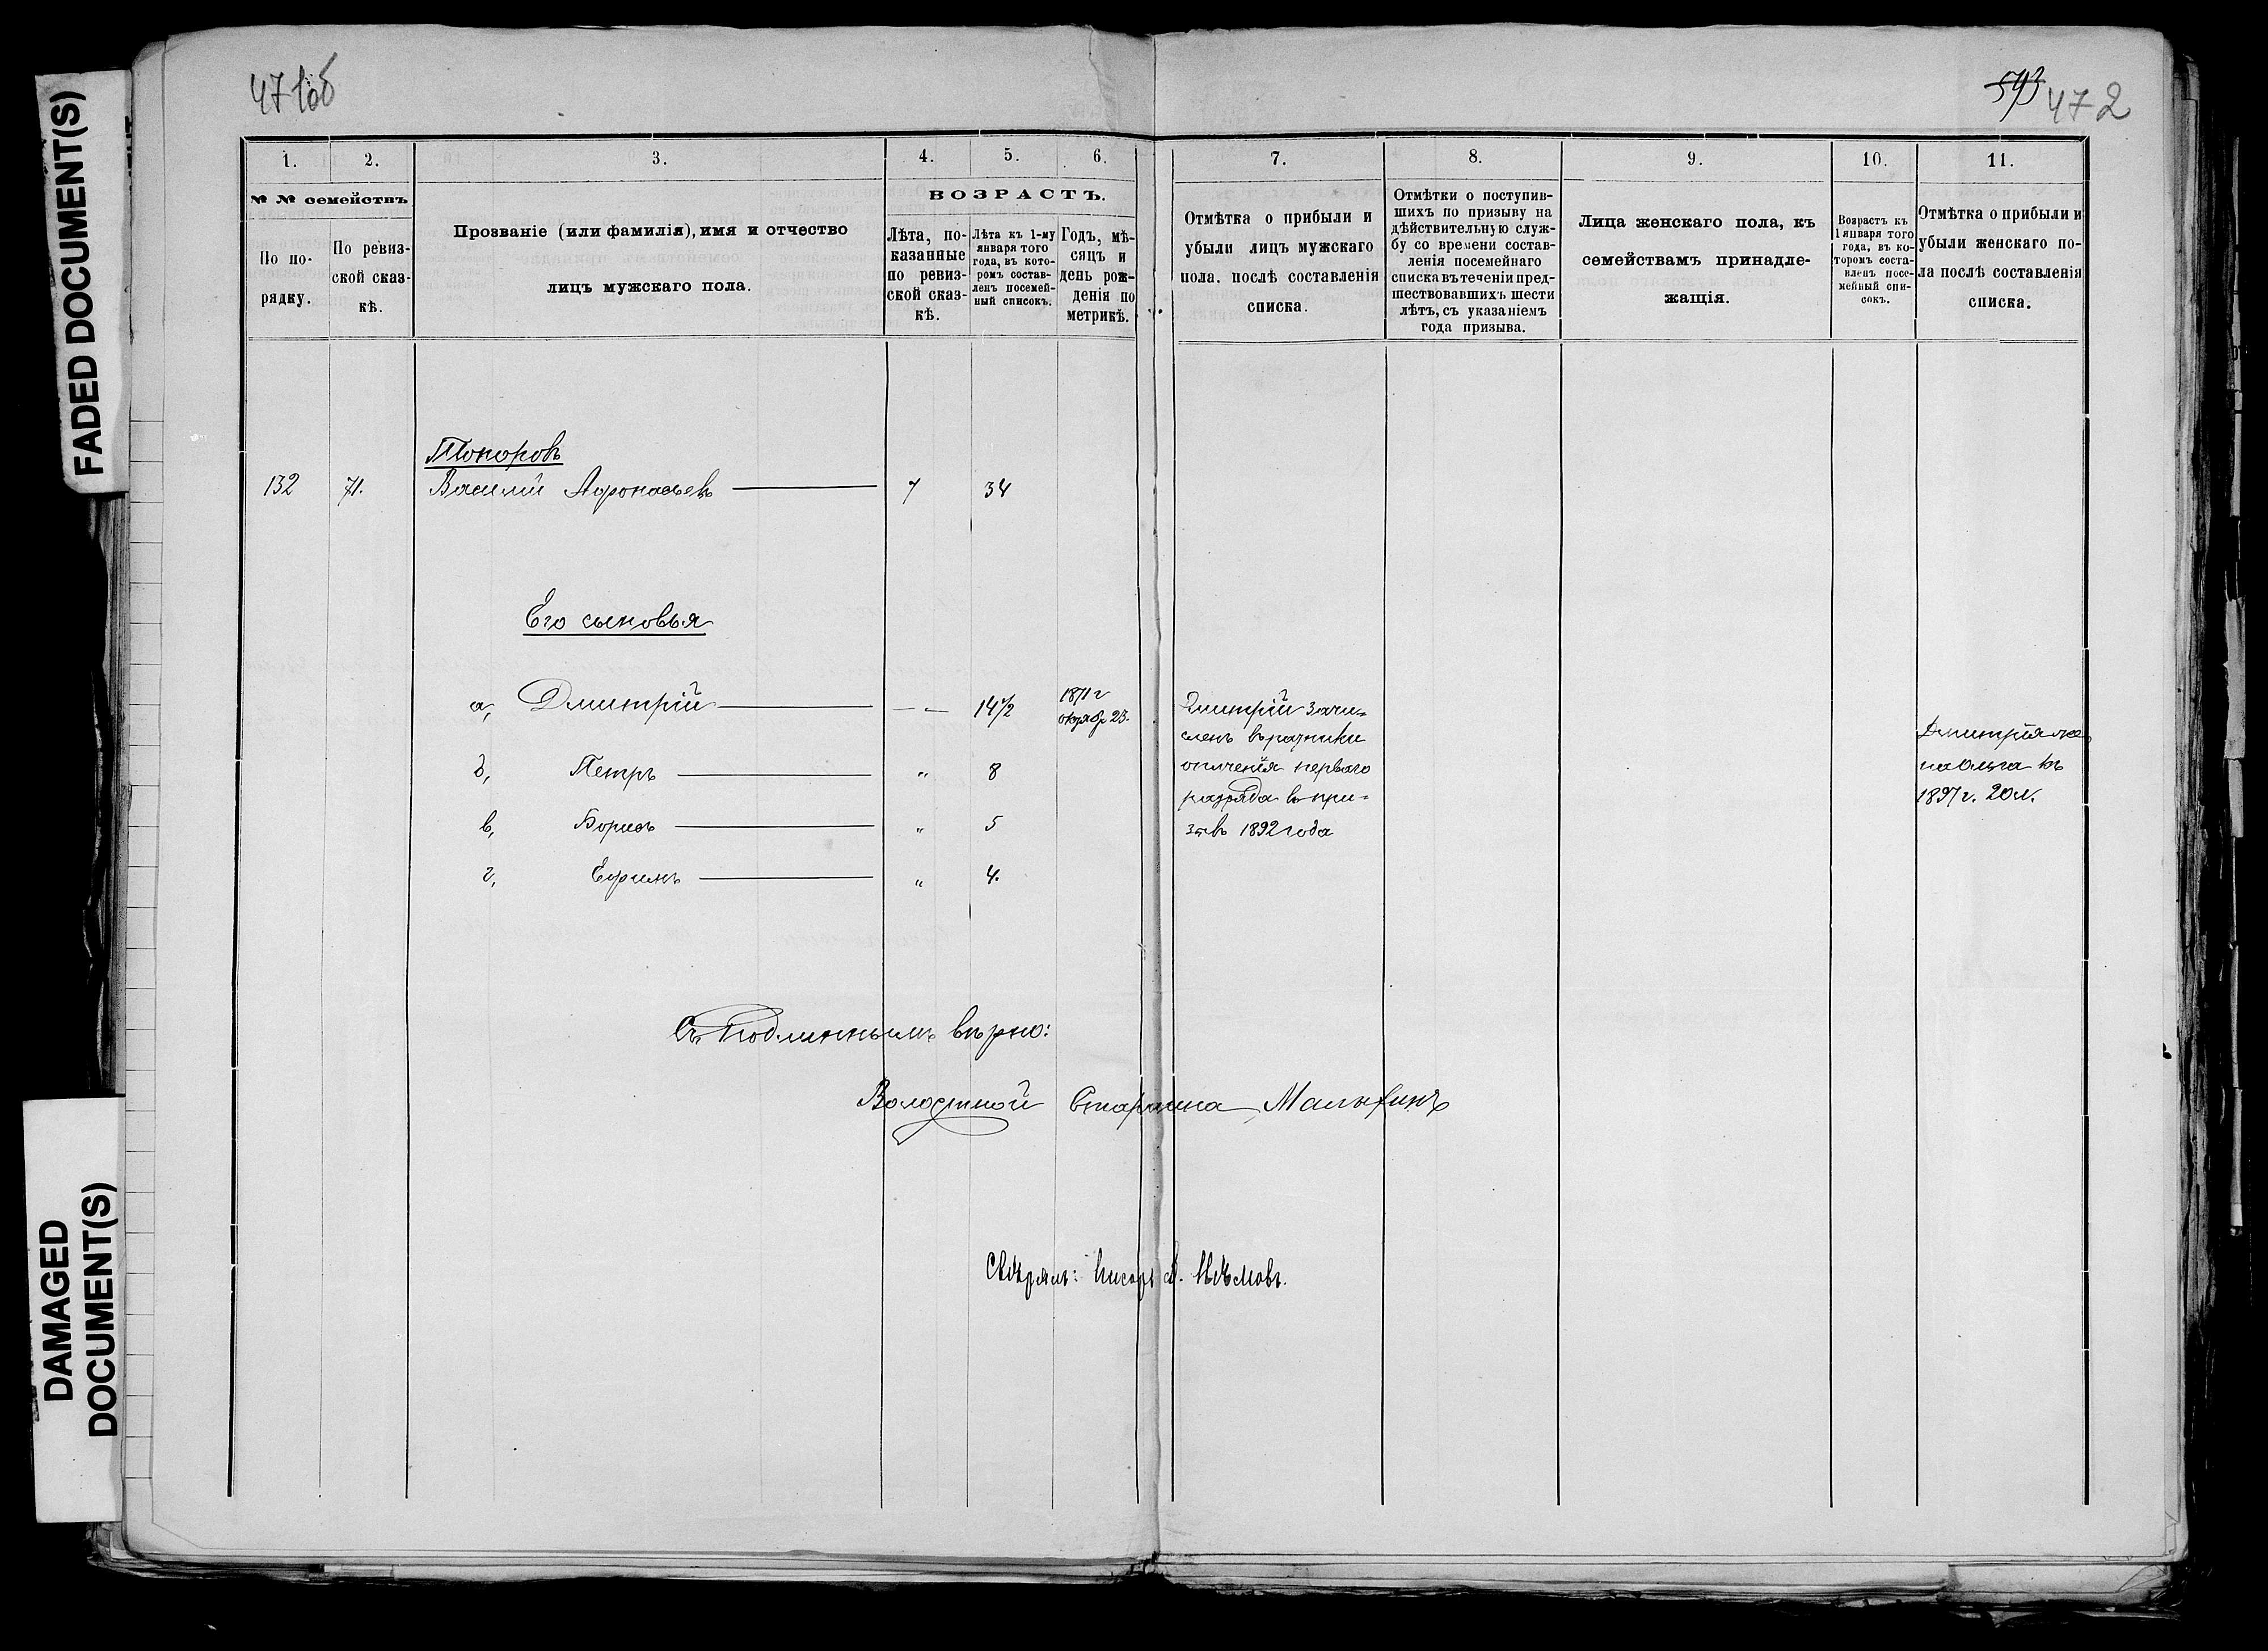 FADED DOCUMENT(S)
DAMAGED
DOCUMENT(S)
471об
593
472
1.
2.
3.
4.
5.
6.
7.
8.
9.
10.
11.
№ № семействъ
По по-
рядку.
По ревиз-
ской сказ-
кѣ.
Прозваніе (или фамилія), имя и отчество
лицъ мужскаго пола.
ВОЗРАСТЪ.
Лѣта, по-
казанные
по ревиз-
ской сказ-
кѣ.
Лѣта къ 1-му
января того
года, въ кото-
ромъ состав-
ленъ посемей-
ный списокъ.
Годъ, мѣ-
сяцъ и
день рож-
денія по
метрикѣ.
Отмѣтка о прибыли и
убыли лицъ мужскаго
пола, послѣ составленія
списка.
Отмѣтки о поступив-
шихъ по призыву на
дѣйствительную служ-
бу со времени состав-
ленія посемейнаго
списка въ теченіи пред-
шествовавшихъ шести
лѣтъ, съ указаніемъ
года призыва.
Лица женскаго пола, къ
семействамъ принадле-
жащія.
Возрастъ къ
1 января того
года, въ ко-
торомъ соста-
вленъ посе-
мейный спи-
сокъ.
Отмѣтка о прибыли и
убыли женскаго по-
ла послѣ составленія
списка.
Топоровъ
132 71. Василій Афонасьевъ 7 34
Его сыновья
а, Дмитрій — — 14½ 1871 г
октябр 23.
б, Петръ " 8
в, Борисъ " 5
г, Ефимъ " 4.
Дмитрій зачи=
сленъ въ ратники
ополченія перваго
разряда въ при=
зывъ 1892 года
Дмитрія же
на Ольга къ
1897 г. 20 л.
Съ подлиннымъ вѣрно:
Волостной Старшина Малыхинъ
Свѣрялъ: Писарь